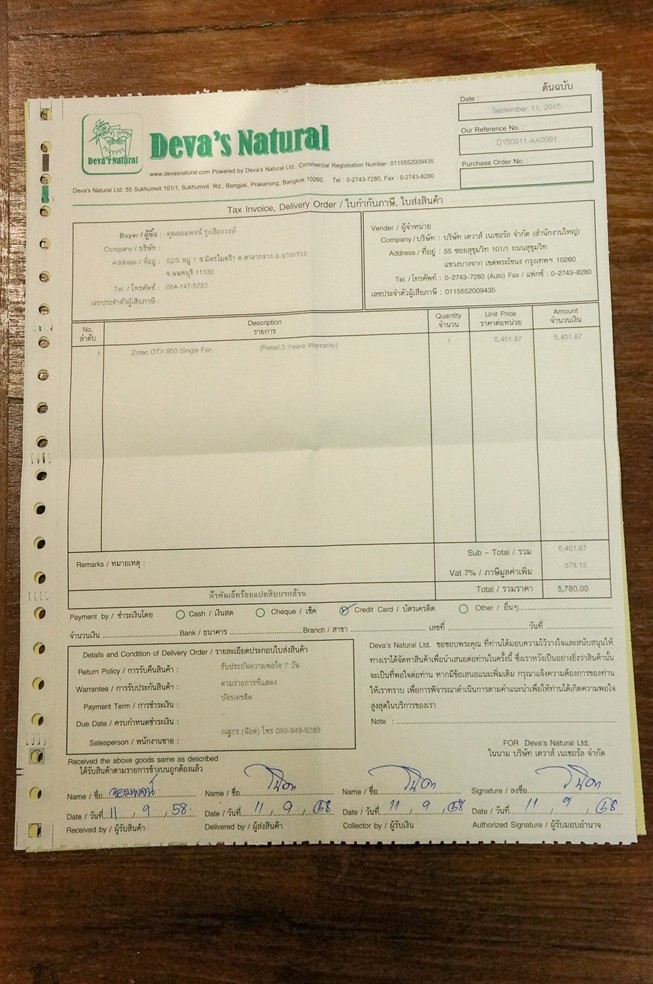 ต้นฉบับ
Deva's Natural
Deva's Natural
www.devasnatural.com Powered by Deva's Natural Ltd. Commercial Registration Number: 0115552009435
Deva's Natural Ltd. 55 Sukhumvit 101/1, Sukhumvit Rd., Bangjak, Prakanong, Bangkok 10260. Tel : 0-2743-7280, Fax : 0-2743-8280
Date :
September 11, 2015
Our Reference No. :
D150911-AA0091
Purchase Order No. :
Tax Invoice, Delivery Order / ใบกำกับภาษี, ใบส่งสินค้า
Buyer / ผู้ซื้อ :
Company / บริษัท :
Address / ที่อยู่ : 52/5 หมู่ 1
จ.นนทบุรี 11130
Tel. / โทรศัพท์ : 084-147-5783
เลขประจำตัวผู้เสียภาษี :
Vendor / ผู้จำหน่าย
Company / บริษัท : บริษัท เดวาส์ เนเชอรัล จำกัด (สำนักงานใหญ่)
Address / ที่อยู่ : 55 ซอยสุขุมวิท 101/1 ถนนสุขุมวิท
แขวงบางจาก เขตพระโขนง กรุงเทพฯ 10260
Tel. / โทรศัพท์ : 0-2743-7280 (Auto) Fax / แฟกซ์ : 0-2743-8280
เลขประจำตัวผู้เสียภาษี : 0115552009435
No. ลำดับ
Description รายการ
Quantity จำนวน
Unit Price ราคาต่อหน่วย
Amount จำนวนเงิน
1 Zotac GTX 950 Single Fan (Retail,3 Years Warranty) 1 5,401.87 5,401.87
Remarks / หมายเหตุ :
Sub - Total / รวม 5,401.87
Vat 7% / ภาษีมูลค่าเพิ่ม 378.13
ห้าพันเจ็ดร้อยแปดสิบบาทถ้วน
Total / รวมราคา 5,780.00
Payment by / ชำระเงินโดย Cash / เงินสด Cheque / เช็ค Credit Card / บัตรเครดิต Other / อื่นๆ
จำนวนเงิน Bank / ธนาคาร Branch / สาขา เลขที่ วันที่
Details and Condition of Delivery Order / รายละเอียดประกอบใบส่งสินค้า
Return Policy / การรับคืนสินค้า : รับประกันความพอใจ 7 วัน
Warrantee / การรับประกันสินค้า : ตามรายการที่แสดง
Payment Term / การชำระเงิน : บัตรเครดิต
Due Date / ครบกำหนดชำระเงิน :
Salesperson / พนักงานขาย : ณฐกร (น๊อต) โทร 089-949-9280
Deva's Natural Ltd. ขอขอบพระคุณ ที่ท่านได้มอบความไว้วางใจและสนับสนุนให้
ทางเราได้จัดหาสินค้าเพื่อนำเสนอต่อท่านในครั้งนี้ ซึ่งเราหวังเป็นอย่างยิ่งว่าสินค้านั้น
จะเป็นที่พอใจต่อท่าน หากมีข้อเสนอแนะเพิ่มเติม กรุณาแจ้งความต้องการของท่าน
ให้เราทราบ เพื่อการพิจารณาดำเนินการตามคำแนะนำเพื่อให้ท่านได้เกิดความพอใจ
สูงสุดในบริการของเรา
Note :
FOR Deva's Natural Ltd.
ในนาม บริษัท เดวาส์ เนเชอรัล จำกัด
Received the above goods same as described
ได้รับสินค้าตามรายการข้างบนถูกต้องแล้ว
Name / ชื่อ Name / ชื่อ Name / ชื่อ Signature / ลงชื่อ
Date / วันที่ 11 , 9 , 58. Date / วันที่ 11 , 9 , 58 Date / วันที่ 11 , 9 , 58 Date / วันที่ 11 , 9 , 58
Received by / ผู้รับสินค้า Delivered by / ผู้ส่งสินค้า Collector by / ผู้รับเงิน Authorized Signature / ผู้รับมอบอำนาจ